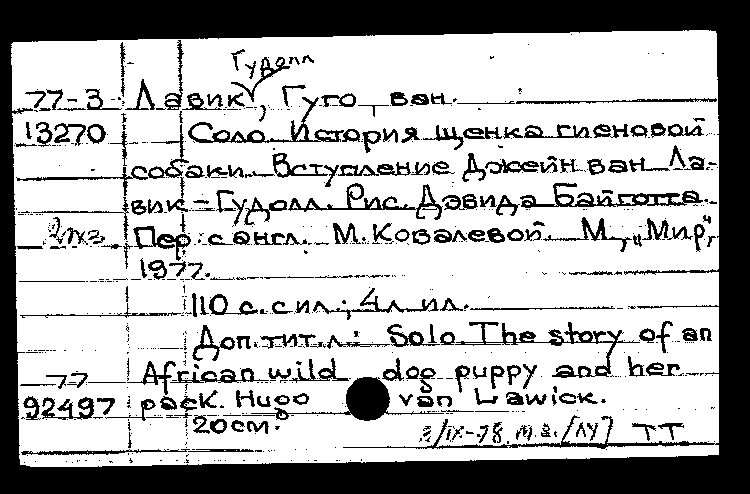 Гудолл
77-3 Лавик, Гуго ван.
13270 Соло. История щенка гиеновой
собаки. Вступление Джейн ван Ла-
вик-Гудолл. Рис. Дэвида Байготта.
2 экз. Пер. с англ. М. Ковалевой. М., „Мир“,
1977.
110 с. с ил.; 4 л. ил.
Доп. тит. л.: Solo. The story of an
77 African wild dog puppy and her
92497 pack. Hugo van Lawick.
20 см. /IX-78. [ЛУ] ТТ